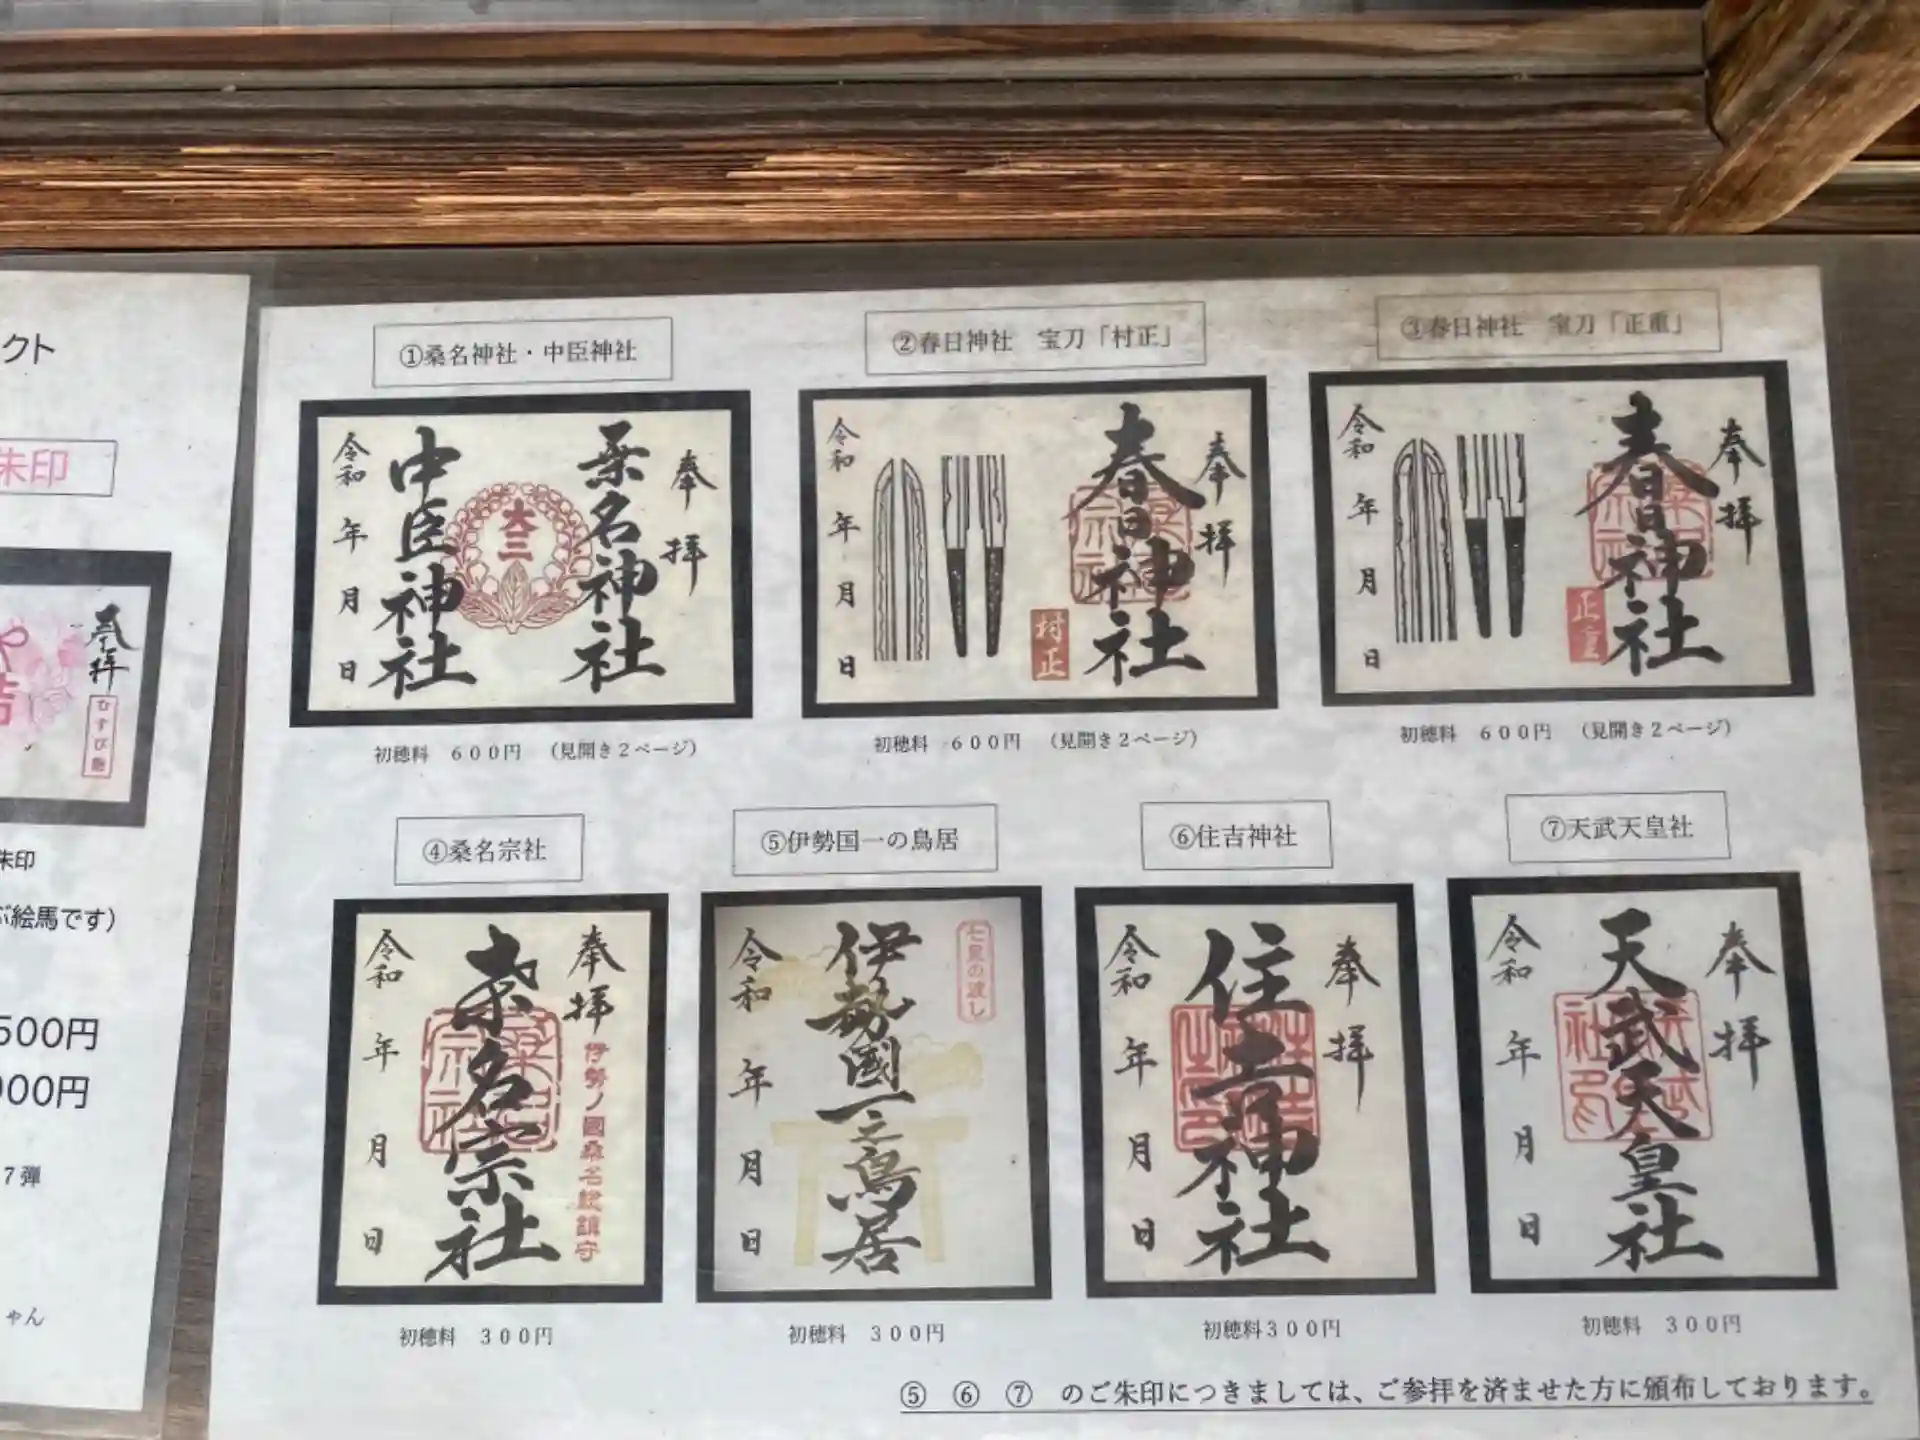 クト
朱印
奉拝
むすび
朱印
ぶ絵馬です）
500円
000円
7弾
ゃん
①桑名神社・中臣神社
奉拝
桑名神社
大三
中臣神社
令和 年 月 日
初穂料 600円 （見開き2ページ）
②春日神社 宝刀「村正」
奉拝
春日神社
村正
令和 年 月 日
初穂料 600円 （見開き2ページ）
③春日神社 宝刀「正重」
奉拝
春日神社
正重
令和 年 月 日
初穂料 600円 （見開き2ページ）
④桑名宗社
奉拝
伊勢ノ國桑名総鎮守
桑名宗社
令和 年 月 日
初穂料 300円
⑤伊勢国一の鳥居
七里の渡し
伊勢國一之鳥居
令和 年 月 日
初穂料 300円
⑥住吉神社
奉拝
住吉神社
令和 年 月 日
初穂料300円
⑦天武天皇社
奉拝
天武天皇社
令和 年 月 日
初穂料 300円
⑤ ⑥ ⑦ のご朱印につきましては、ご参拝を済ませた方に頒布しております。